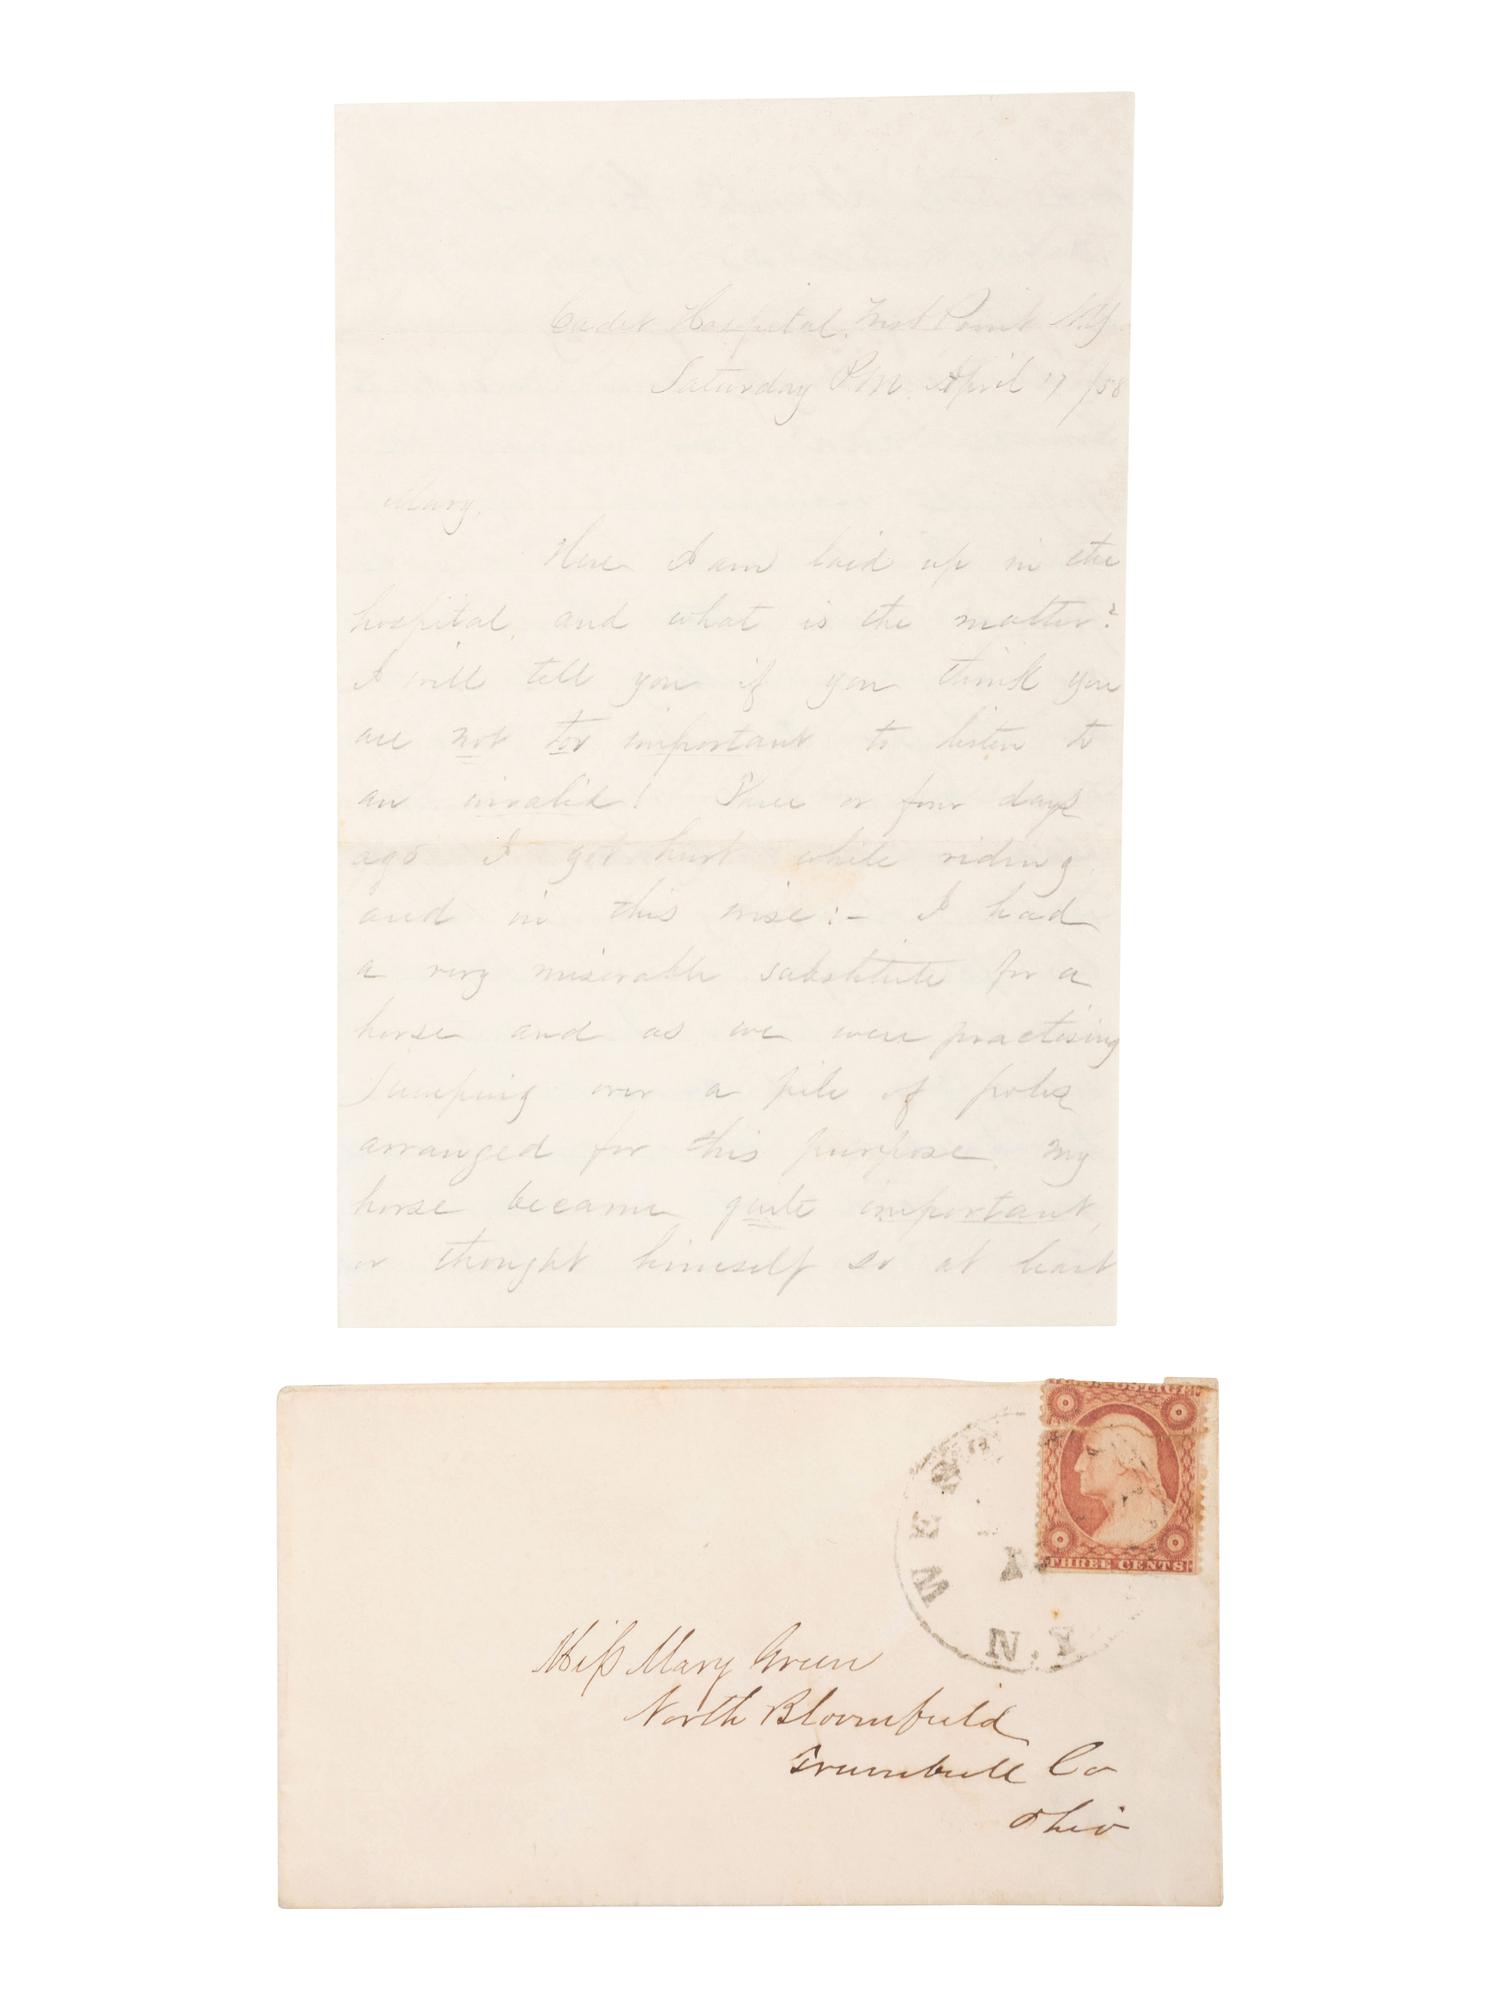 Cadet Hospital, West Point N.Y.
Saturday P.M. April 17 /58
Mary,
Here I am laid up in the
hospital, and what is the matter?
I will tell you if you think you
are not too important to listen to
an invalid! Three or four days
ago I got hurt while riding,
and in this wise:- I had
a very miserable substitute for a
horse and as we were practising
jumping over a pile of poles
arranged for this purpose, my
horse became quite important,
or thought himself so at least
THREE CENTS
WES
N.Y.
Miss Mary Green
North Bloomfield
Trumbull Co
Ohio